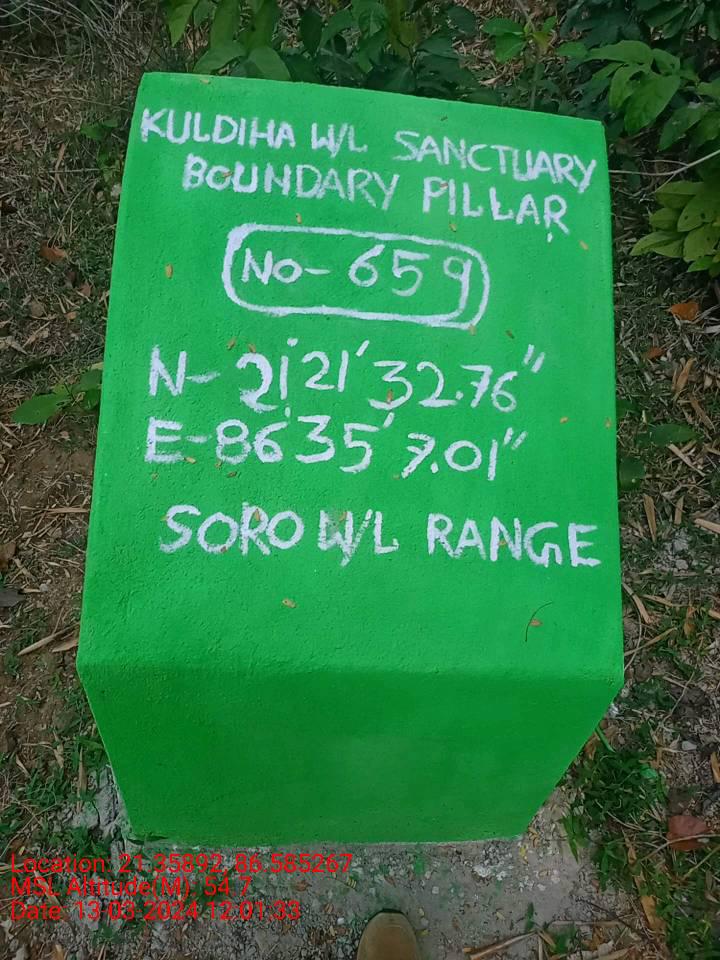 KULDIHA W/L SANCTUARY
BOUNDARY PILLAR
No- 659
N- 21°21'32.76"
E-86°35'7.01"
SORO W/L RANGE
Location: 21.35892, 86.585267
MSL Altitude(M): 54.7
Date: 13-03-2024 12:01:33